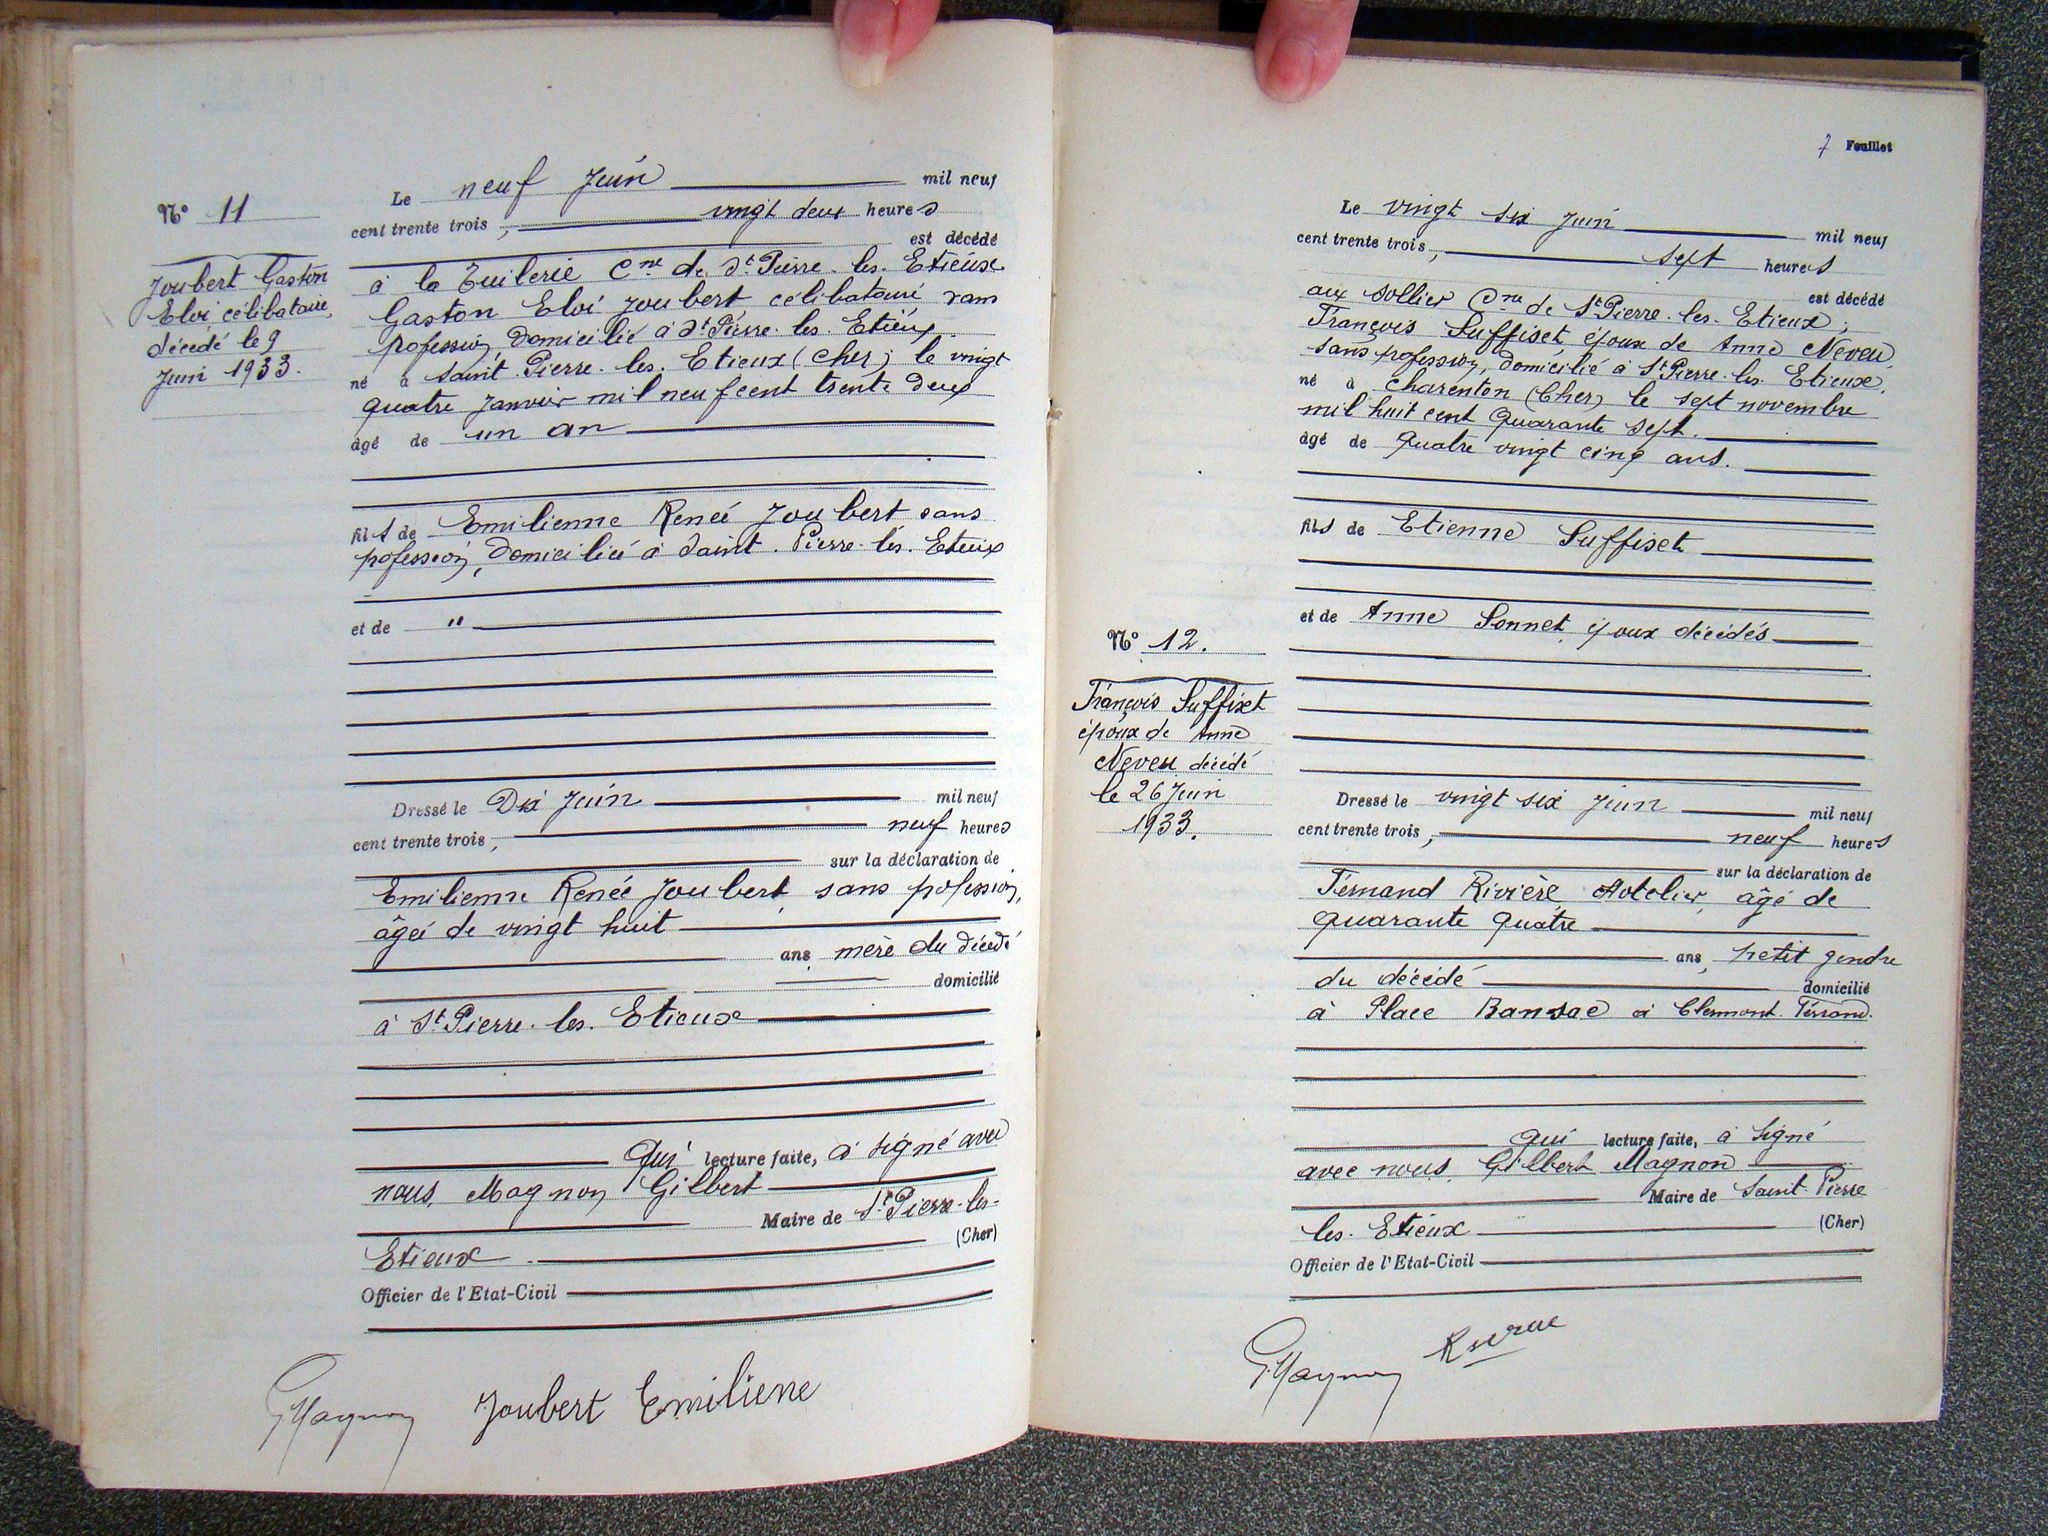 N° 11
Joubert Gaston
Eloi célibataire,
décédé le 9
Juin 1933.
Le neuf Juin mil neuf
cent trente trois, vingt deux heures
est décédé
à la Tuilerie Cne de St Pierre-les-Etieux
Gaston Eloi Joubert célibataire sans
profession, domicilié à St Pierre-les-Etieux
né à Saint-Pierre-les-Etieux (Cher) le vingt
quatre Janvier mil neuf cent trente deux
âgé de un an
fils de Emilienne Renée Joubert sans
profession, domiciliée à Saint-Pierre-les-Etieux
et de "
Dressé le Dix Juin mil neuf
cent trente trois, neuf heures
sur la déclaration de
Emilienne Renée Joubert, sans profession,
âgée de vingt huit
ans, mère du décédé
domicilié
à St Pierre-les-Etieux
Qui lecture faite, a signé avec
nous, Magnon Gilbert
Maire de St Pierre-les-
Etieux (Cher)
Officier de l'Etat-Civil
G. Magnon Joubert Emiliene
7 Feuillet
N° 12.
François Suffiset
époux de Anne
Neveu décédé
le 26 Juin
1933.
Le vingt six Juin mil neuf
cent trente trois, sept heures
est décédé
aux Sollier Cne de St Pierre-les-Etieux,
François Suffiset époux de Anne Neveu,
sans profession, domicilié à St Pierre-les-Etieux,
né à Charenton (Cher) le sept novembre
mil huit cent quarante sept.
âgé de quatre vingt cinq ans.
fils de Etienne Suffiset
et de Anne Sonnet, époux décédés
Dressé le vingt six Juin mil neuf
cent trente trois, neuf heures
sur la déclaration de
Fernand Rivière, Hotelier, âgé de
quarante quatre
ans, petit gendre
du décédé domicilié
à Place Bansac à Clermont-Ferrand.
Qui lecture faite, a signé
avec nous, Gilbert Magnon
Maire de Saint-Pierre
les-Etieux (Cher)
Officier de l'Etat-Civil
G. Magnon